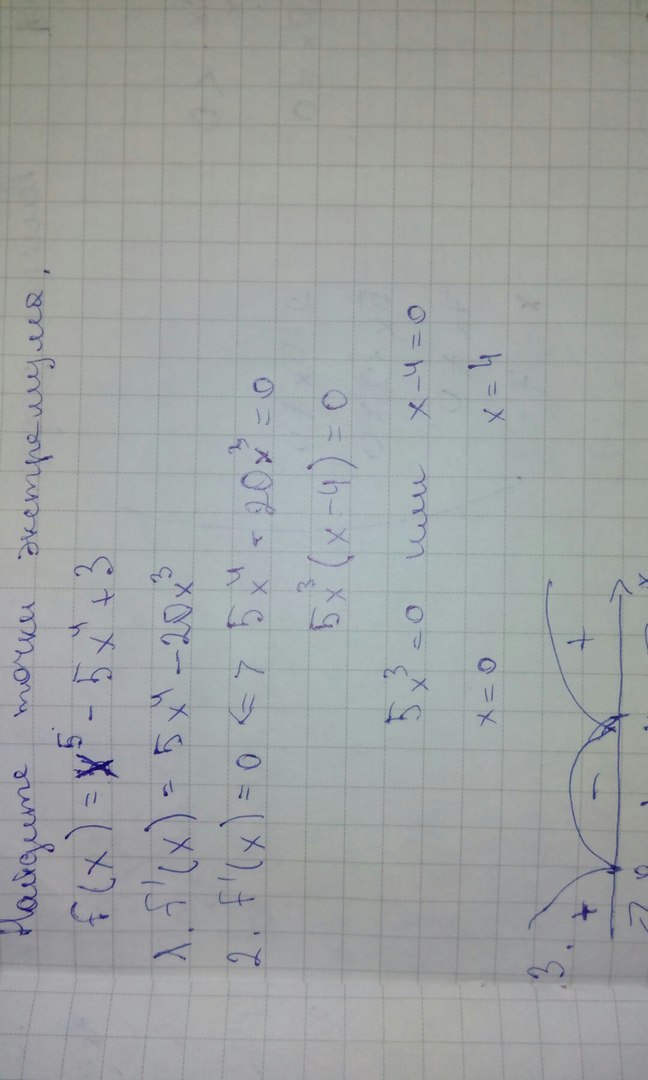 Найдите точки экстремума.
f(x) = x⁵ - 5x⁴ + 3
1. f'(x) = 5x⁴ - 20x³
2. f'(x) = 0 <=> 5x⁴ - 20x³ = 0
5x³(x-4) = 0
5x³ = 0 или x-4=0
x=0 x=4
3. + - +
x